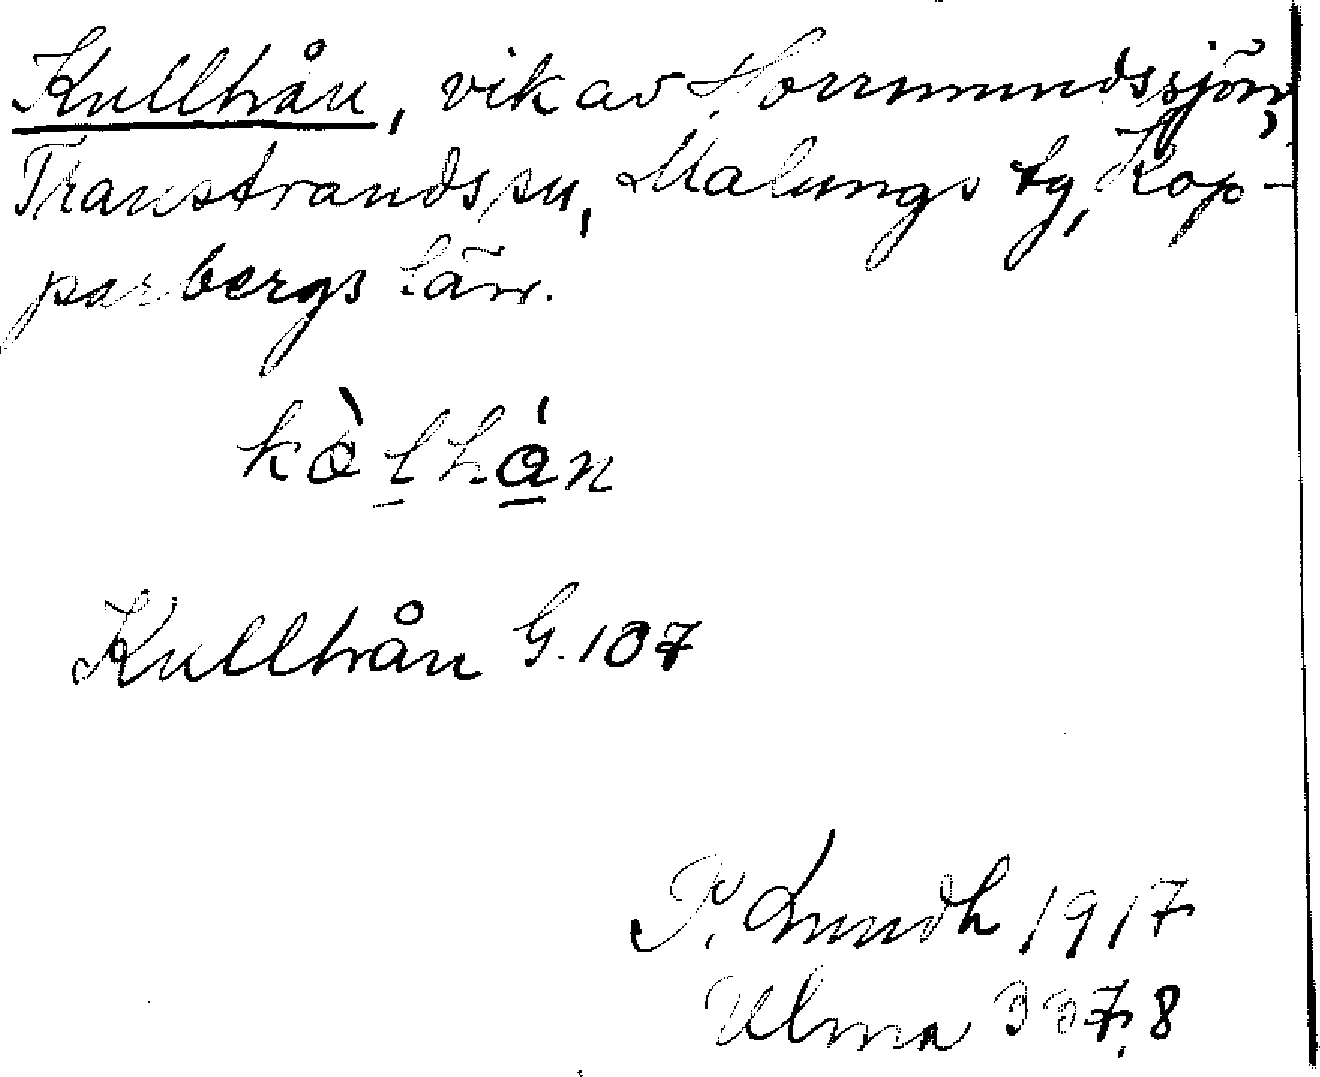 Kullhån, vik av Horrmundssjön,
Transtrands sn, Malungs tg, Kop-
parbergs län.
kòlhán
Kullhån G. 107
P. Lundh 1917
Ulma 337,8